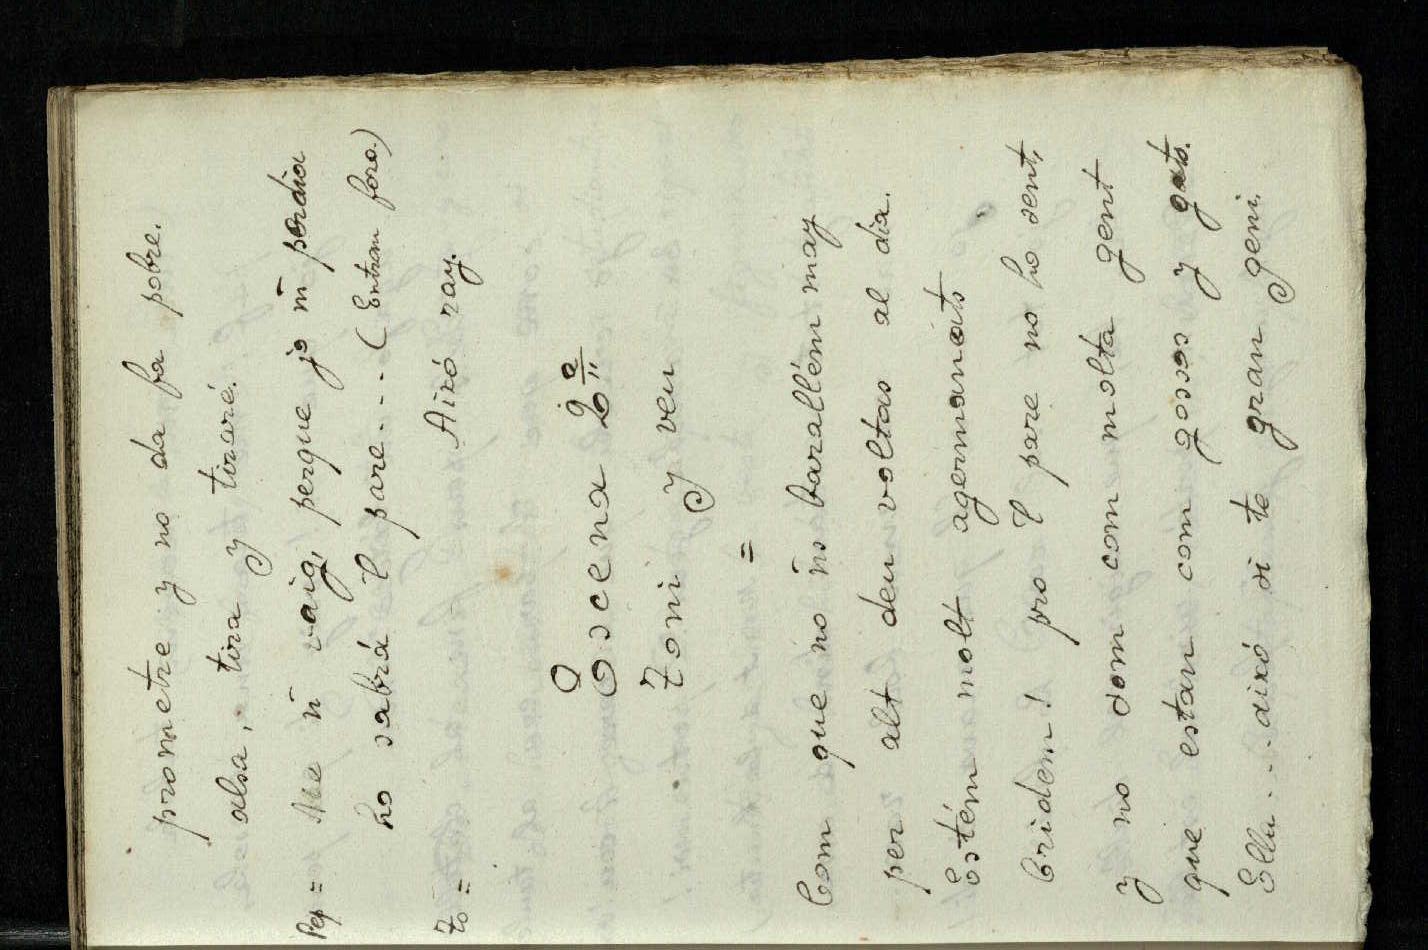 prometre y no da fa pobre.
alsa, tira y tiraré.
Pep = Me n̄ vaig, perque jo m̄ perdia
ho sabrá l̄ pare... (Entran fora.)
To = Aixó ray.
Escena 2ª
Toni y veu
=
Com que no n̄s barallém may
per alt deu voltas al dia.
Estém molt agermanats
Cridem! pro l̄ pare no ho sent,
y no som com molta gent
que estan com gossos y gats.
Ella... aixó si te gran geni.